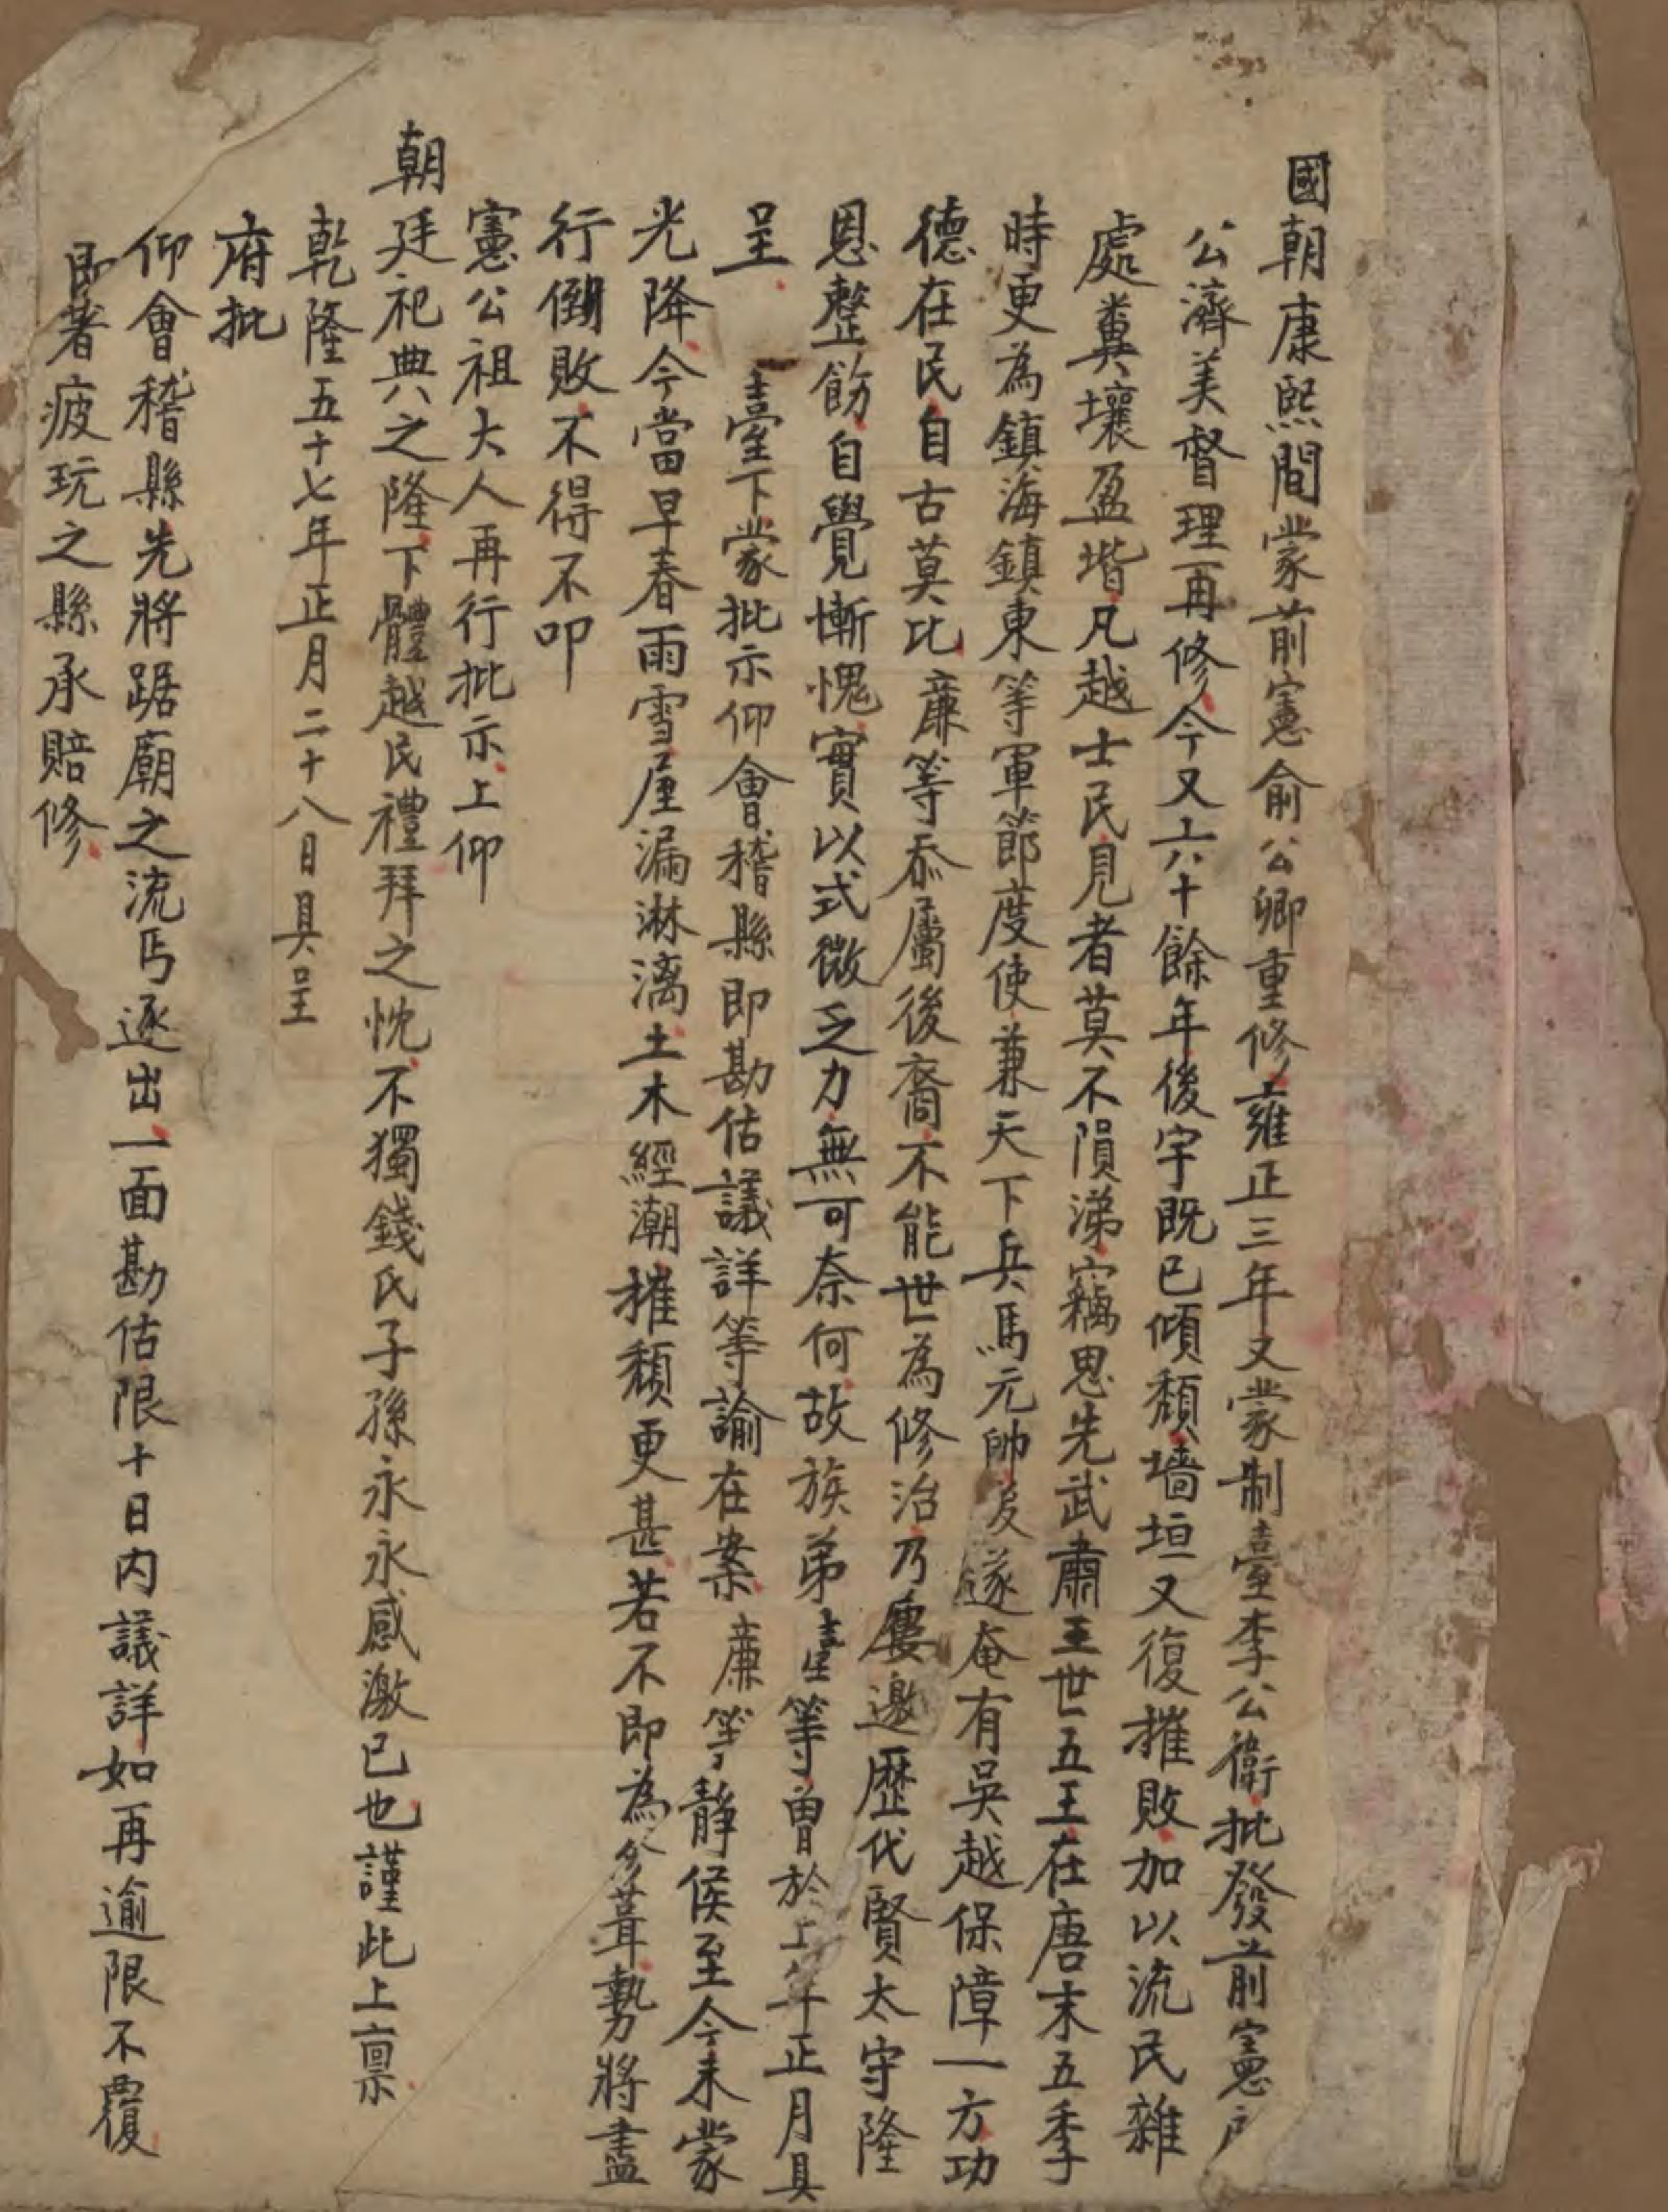 國朝康熙間蒙前憲俞公卿重修雍正三年又蒙制臺李公衛批發前憲
公濟美督理再修今又六十餘年後宇既已傾頹墻垣又復摧敗加以流民雜
處糞壤盈堦凡越士民見者莫不隕涕竊思先武肅王世五王在唐末五季
時更為鎮海鎮東等軍節度使兼天下兵馬元帥後遂奄有吳越保障一方功
德在民自古莫比廉等忝屬後裔不能世為修治乃屢邀歷代賢太守隆
恩整飭自覺慚愧實以式微乏力無可奈何故族弟臺等曾於上年正月具
呈 臺下蒙批示仰會稽縣即勘估議詳等諭在案廉等靜侯至今未蒙
光降今當早春雨雪屋漏淋漓土木經潮摧頹更甚若不即為修葺勢將盡
行倒敗不得不叩
憲公祖大人再行批示上仰
朝廷祀典之隆下體越民禮拜之忱不獨錢氏子孫永永感激已也謹此上稟
乾隆五十七年正月二十八日具呈
府批
仰會稽縣先將踞廟之流丐逐出一面勘估限十日內議詳如再逾限不覆
即著疲玩之縣承賠修